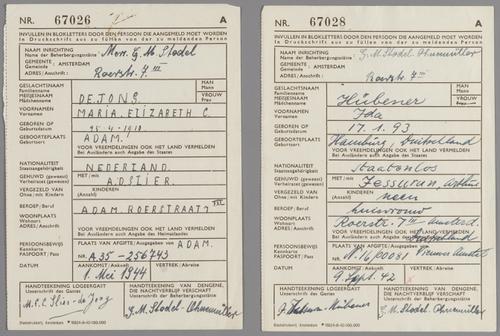 NR. 67026 A
INVULLEN IN BLOKLETTERS DOOR DEN PERSOON DIE AANGEMELD MOET WORDEN
In Druckschrift aus zu füllen von der zu meldenden Person
NAAM INRICHTING
Name der Beherbergungsstätte
Mevr. G. M. Stodel
GEMEENTE
Gemeinde : AMSTERDAM
ADRES/Anschrift :
Roerstr. 7 III
GESLACHTSNAAM
Familienname
MEISJESNAAM
Mädchenname
MAN
Mann
VROUW
Frau
DE JONG
VOORNAMEN
Vornamen
MARIA ELIZABETH C.
GEBOREN OP
Geburtsdatum
25-4-1910
GEBOORTEPLAATS
Geburtsort
ADAM
VOOR VREEMDELINGEN OOK HET LAND VERMELDEN
Bei Ausländern auch Angabe des Staates
NATIONALITEIT
Staatsangehörigkeit
NEDERLAND
GEHUWD (geweest)
Verheiratet (gewesen)
MET/mit
A.D. SLIER
VERGEZELD VAN
Ohne/mit
KINDEREN
Kindern
(AANTAL)
(Anzahl)
BEROEP/Beruf
WOONPLAATS
Wohnort
ADRES/Anschrift
ADAM ROERSTRAAT 7 III
VOOR VREEMDELINGEN OOK HET LAND VERMELDEN
Bei Ausländern auch Angabe des Heimatlandes
PERSOONSBEWIJS
Kennkarte
PASPOORT/Pass
PLAATS VAN AFGIFTE/Ausgegeben von
ADAM.
NR A35-256743
DATUM
AANKOMST/Ankunft
VERTREK/Abreise
1 Mei 1944
HANDTEEKENING LOGEERGAST
Unterschrift des Gastes
HANDTEEKENING VAN DENGENE,
DIE NACHTVERBLIJF VERSCHAFT
Unterschrift der Beherbergungsstätte
M.E.C. Slier-de Jong
G.M. Stodel-Ohrenmüller
Stadsdrukkerij, Amsterdam
NR. 67028 A
INVULLEN IN BLOKLETTERS DOOR DEN PERSOON DIE AANGEMELD MOET WORDEN
In Druckschrift aus zu füllen von der zu meldenden Person
NAAM INRICHTING
Name der Beherbergungsstätte
G. M. Stodel-Ohrenmüller
GEMEENTE
Gemeinde : AMSTERDAM
ADRES/Anschrift :
Roerstr. 7 III
GESLACHTSNAAM
Familienname
MEISJESNAAM
Mädchenname
MAN
Mann
VROUW
Frau
Hübener
VOORNAMEN
Vornamen
Ida
GEBOREN OP
Geburtsdatum
17.1.93
GEBOORTEPLAATS
Geburtsort
Hamburg, Duitschland
VOOR VREEMDELINGEN OOK HET LAND VERMELDEN
Bei Ausländern auch Angabe des Staates
NATIONALITEIT
Staatsangehörigkeit
Staatenlos
GEHUWD (geweest)
Verheiratet (gewesen)
MET/mit
Jessurun, Arthur
VERGEZELD VAN
Ohne/mit
KINDEREN
Kindern
(AANTAL)
(Anzahl)
neen
BEROEP/Beruf
huisvrouw
WOONPLAATS
Wohnort
ADRES/Anschrift
Roerstr. 7 III Amsterd.
VOOR VREEMDELINGEN OOK HET LAND VERMELDEN
Bei Ausländern auch Angabe des Heimatlandes
PERSOONSBEWIJS
Kennkarte
PASPOORT/Pass
PLAATS VAN AFGIFTE/Ausgegeben von
Nieuwer Amstel
NR
DATUM
AANKOMST/Ankunft
VERTREK/Abreise
9 Sept. 42
HANDTEEKENING LOGEERGAST
Unterschrift des Gastes
HANDTEEKENING VAN DENGENE,
DIE NACHTVERBLIJF VERSCHAFT
Unterschrift der Beherbergungsstätte
G. M. Stodel-Ohrenmüller
Stadsdrukkerij, Amsterdam